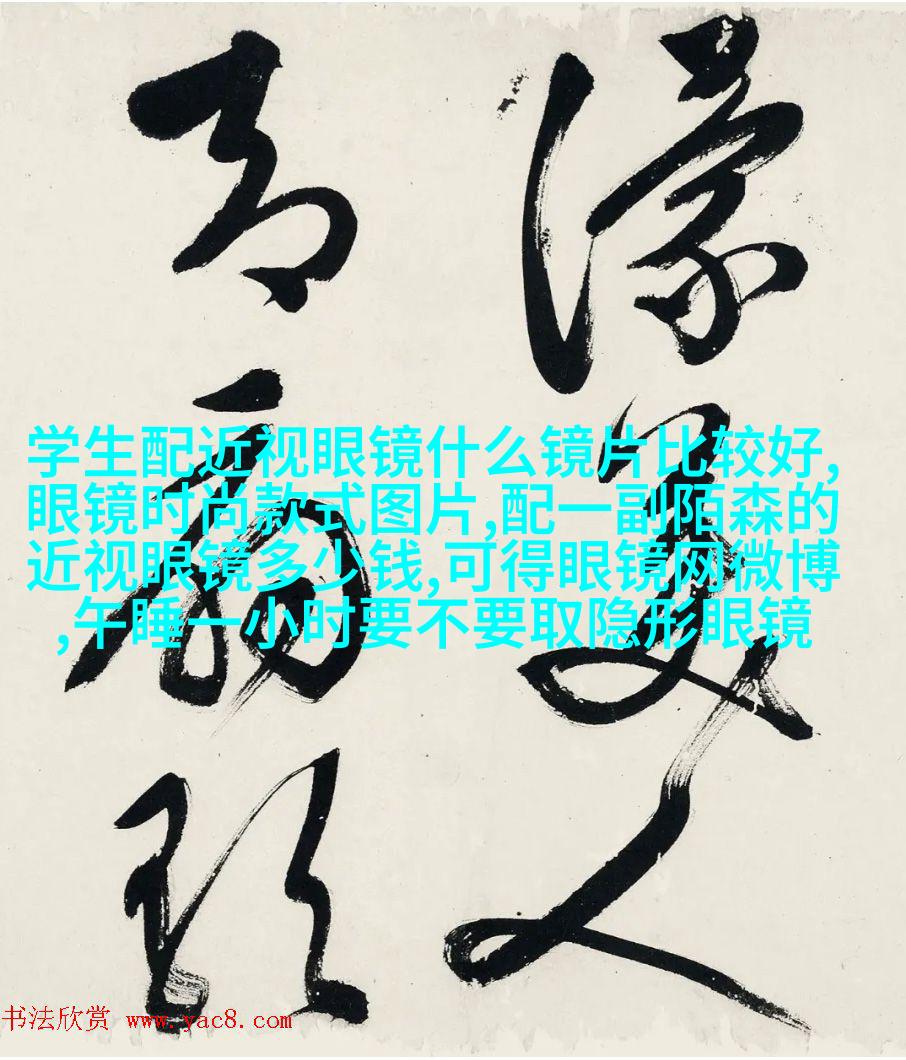 美人
学生配近视眼镜什么镜片比较好,
眼镜时尚款式图片,配一副陌森的
近视眼镜多少钱,可得眼镜网微博
,午睡一小时要不要取隐形眼镜
书法欣赏 www.yac8.com